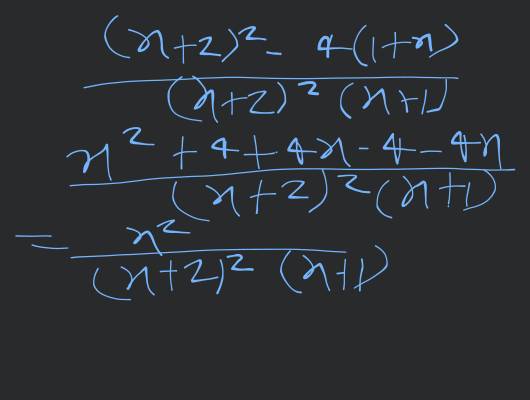 (x+2)² - 4(1+x)
(x+2)² (x+1)
x² + 4 + 4x - 4 - 4x
(x+2)² (x+1)
= x²
(x+2)² (x+1)